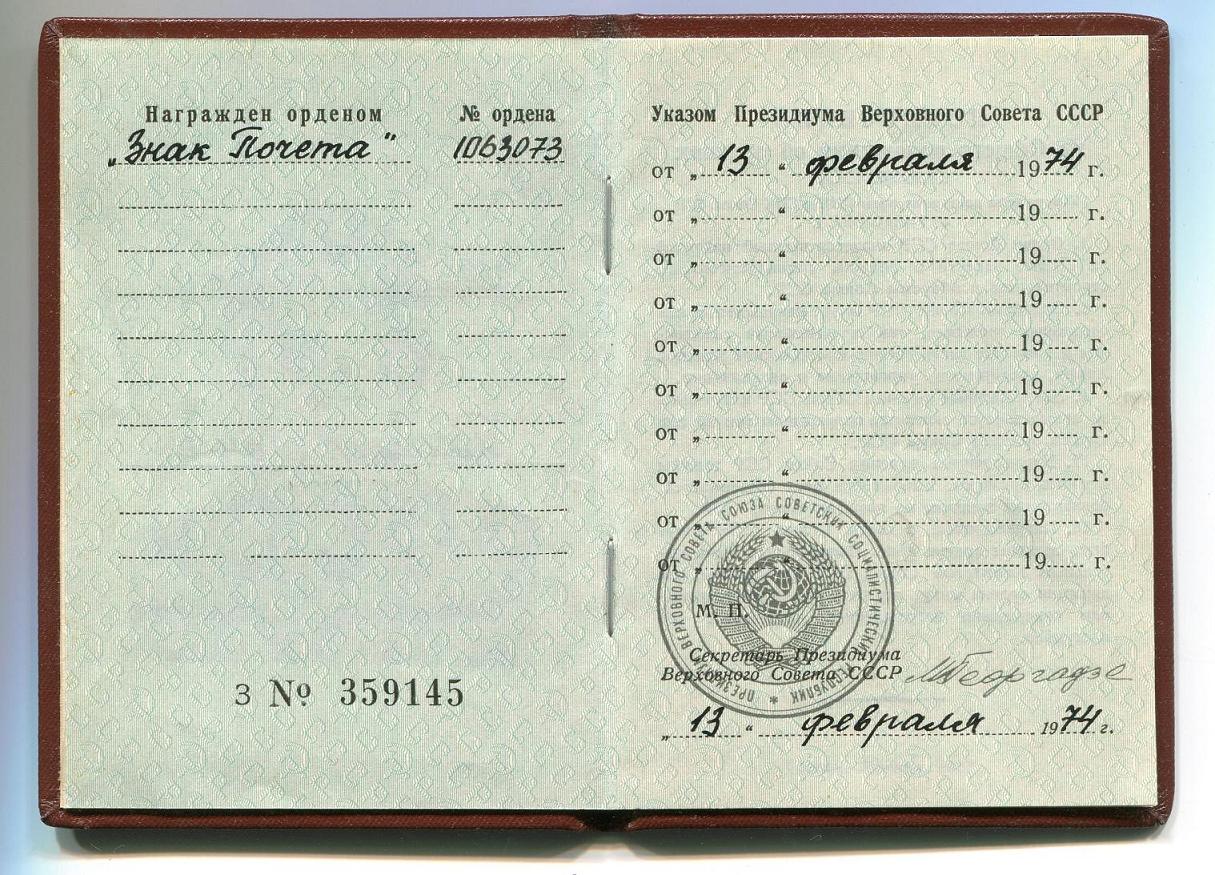 Награжден орденом
№ ордена
„Знак Почета"
1063073
З № 359145
Указом Президиума Верховного Совета СССР
от „13“ февраля 1974 г.
от „ “ 19 г.
от „ “ 19 г.
от „ “ 19 г.
от „ “ 19 г.
от „ “ 19 г.
от „ “ 19 г.
от „ “ 19 г.
от „ “ 19 г.
от „ “ 19 г.
ПРЕЗИДИУМ ВЕРХОВНОГО СОВЕТА СОЮЗА СОВЕТСКИХ СОЦИАЛИСТИЧЕСКИХ РЕСПУБЛИК *
М. П.
Секретарь Президиума
Верховного Совета СССР
МГеоргадзе
„13“ февраля 1974 г.